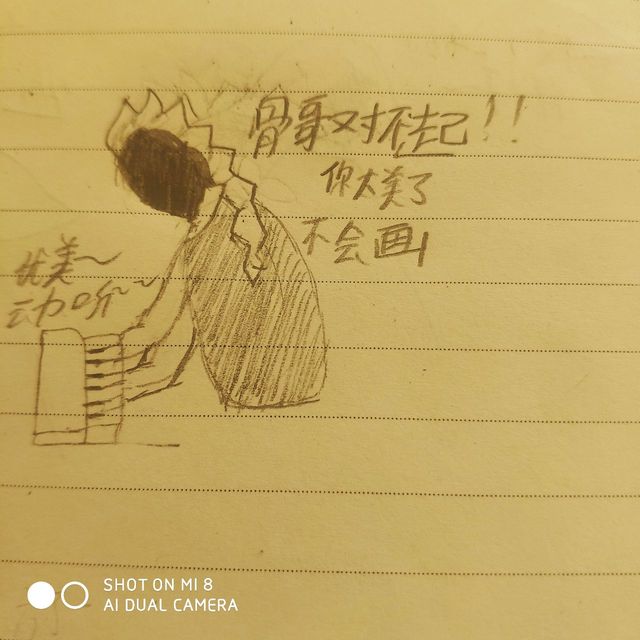 骨哥对不起!!
你太美了
不会画
优美~
动听~~
SHOT ON MI 8
AI DUAL CAMERA